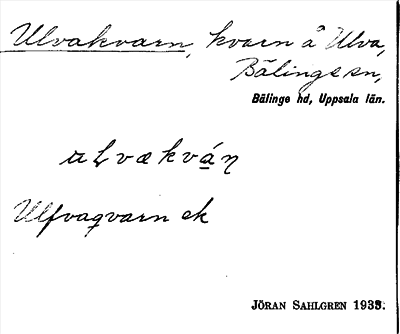 Ulvakvarn, kvarn å Ulva,
Bälinge sn,
Bälinge hd, Uppsala län.
Ulfvaqvarn ek
JÖRAN SAHLGREN 1933.